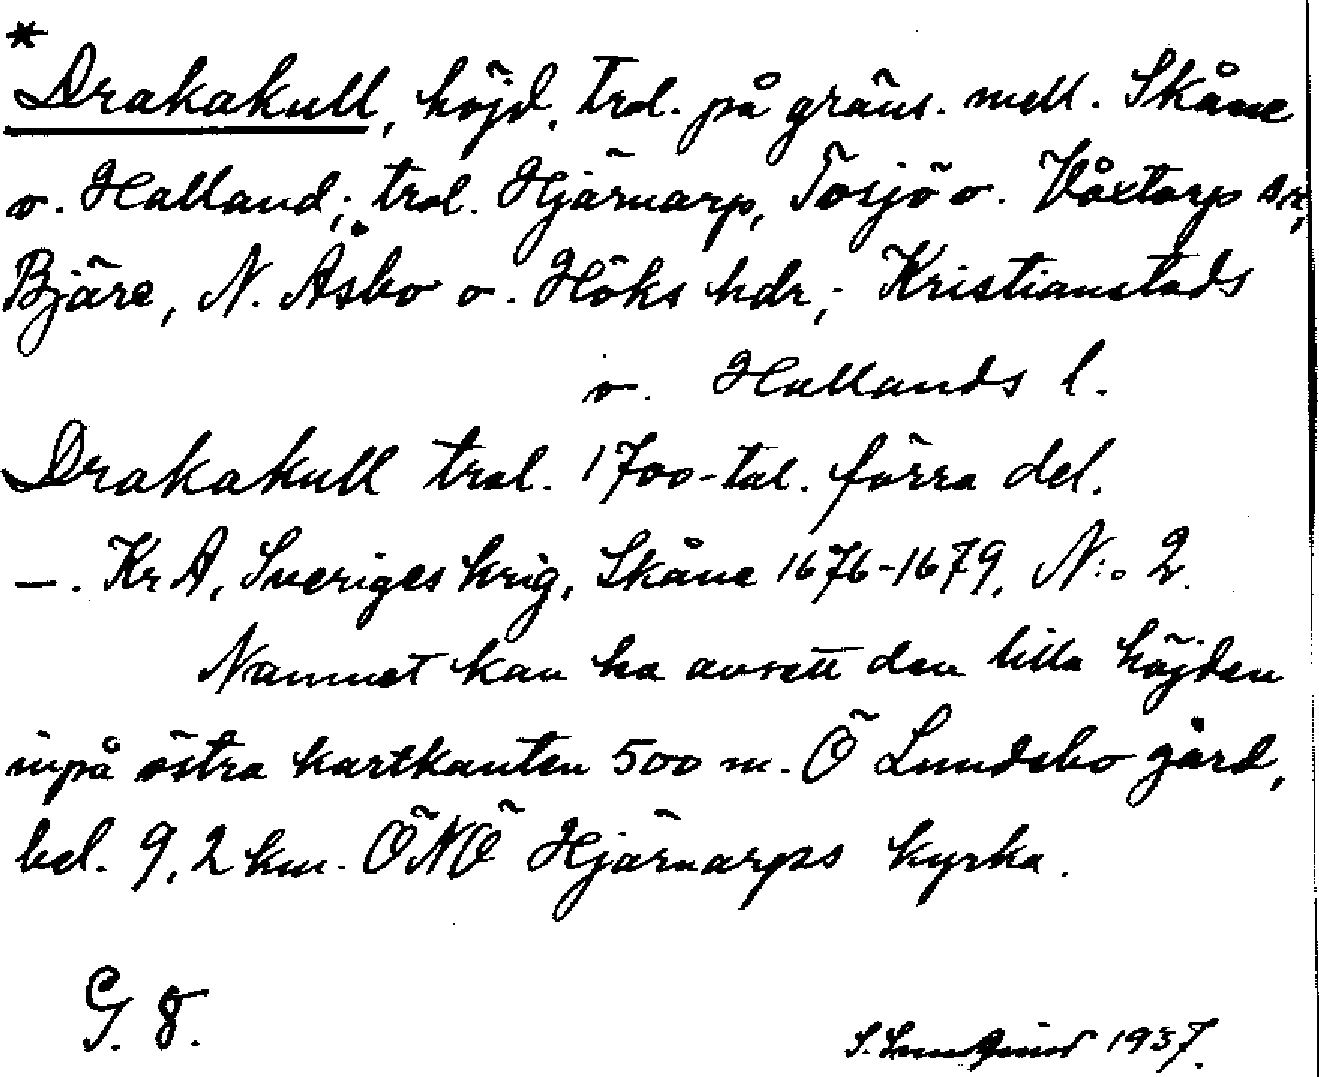 *
Drakakull, höjd, trol. på gräns. mell. Skåne
o. Halland; trol. Hjärnarp, Tosjö o. Våxtorp snr,
Bjäre, N. Åsbo o. Höks hdr, Kristianstads
o. Hallands l.
Drakakull trol. 1700-tal. förra del.
—. KrA, Sveriges krig, Skåne 1676-1679, N:o 2.
Namnet kan ha avsett den lilla höjden
inpå östra kartkanten 500 m. Ö Lundsbo gård,
bel. 9,2 km. ÖNÖ Hjärnarps kyrka.
G. 8.
S. 1937.